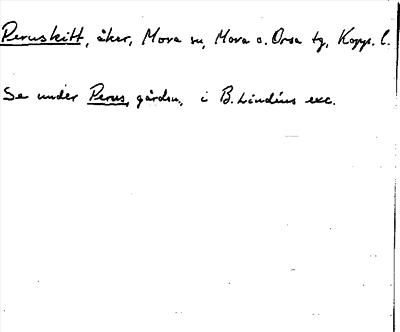 Peruskitt, åker, Mora sn, Mora o. Orsa tg, Kopp. l.
Se under Perus, gårdsn, i B. Lindéns exc.